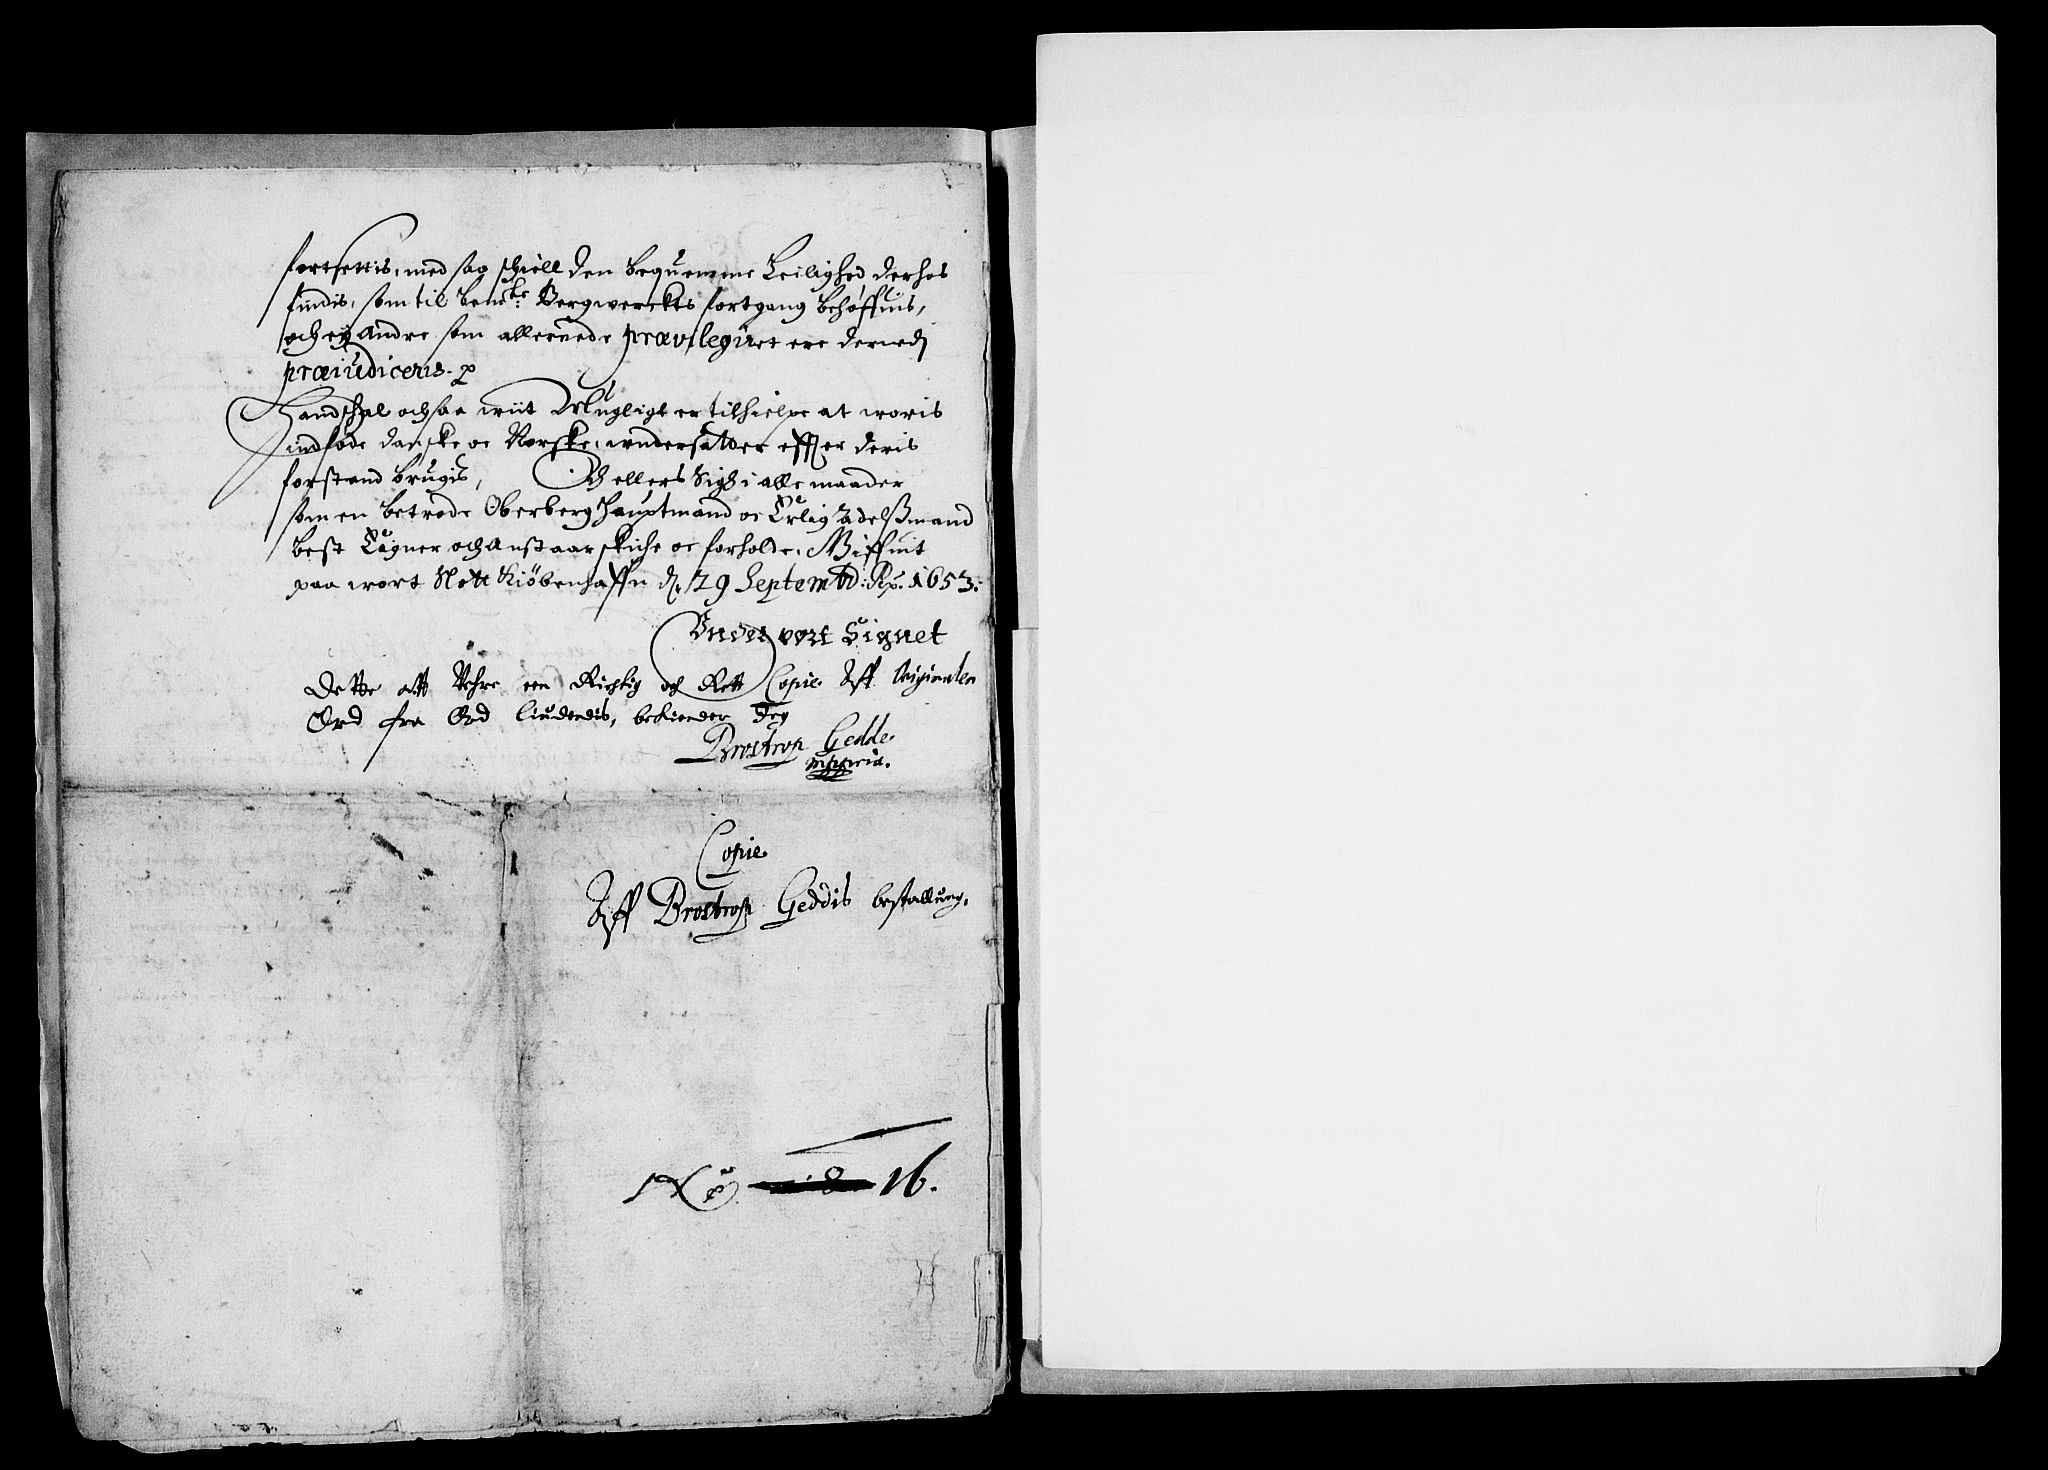 fortsettis, med saa skiell den beqvemme Leilighed derhos
findis, som til bemte Bergwerckts fortgang behøffuis,
och ey Andre som allereede prævilegiret ere dermed
præiudiceris.
Hand skal ochsaa wiit Mugligt er tilhielpe at woris
indføde danske oc Norske, wndersatter effter deris
forstand brugis, Och ellers sigh i alle maader
som en betrode Oberberg Hauptmand oc Erlig Adelßmand
best Eigner och Anstaar skiche oc forholde. Giffuit
paa wort Slott Kiøbenhaffn d. 29 Septemb: Aº. 1653.
Under vort Signet
Dette att Vehre een Richtig och Rett Copie Aff Originalen
Ord fra Ord liudendis, bekiender Jeg
Brostrop Gedde
mppria.
Copie
Aff Brostrop Geddis bestalling.
16.